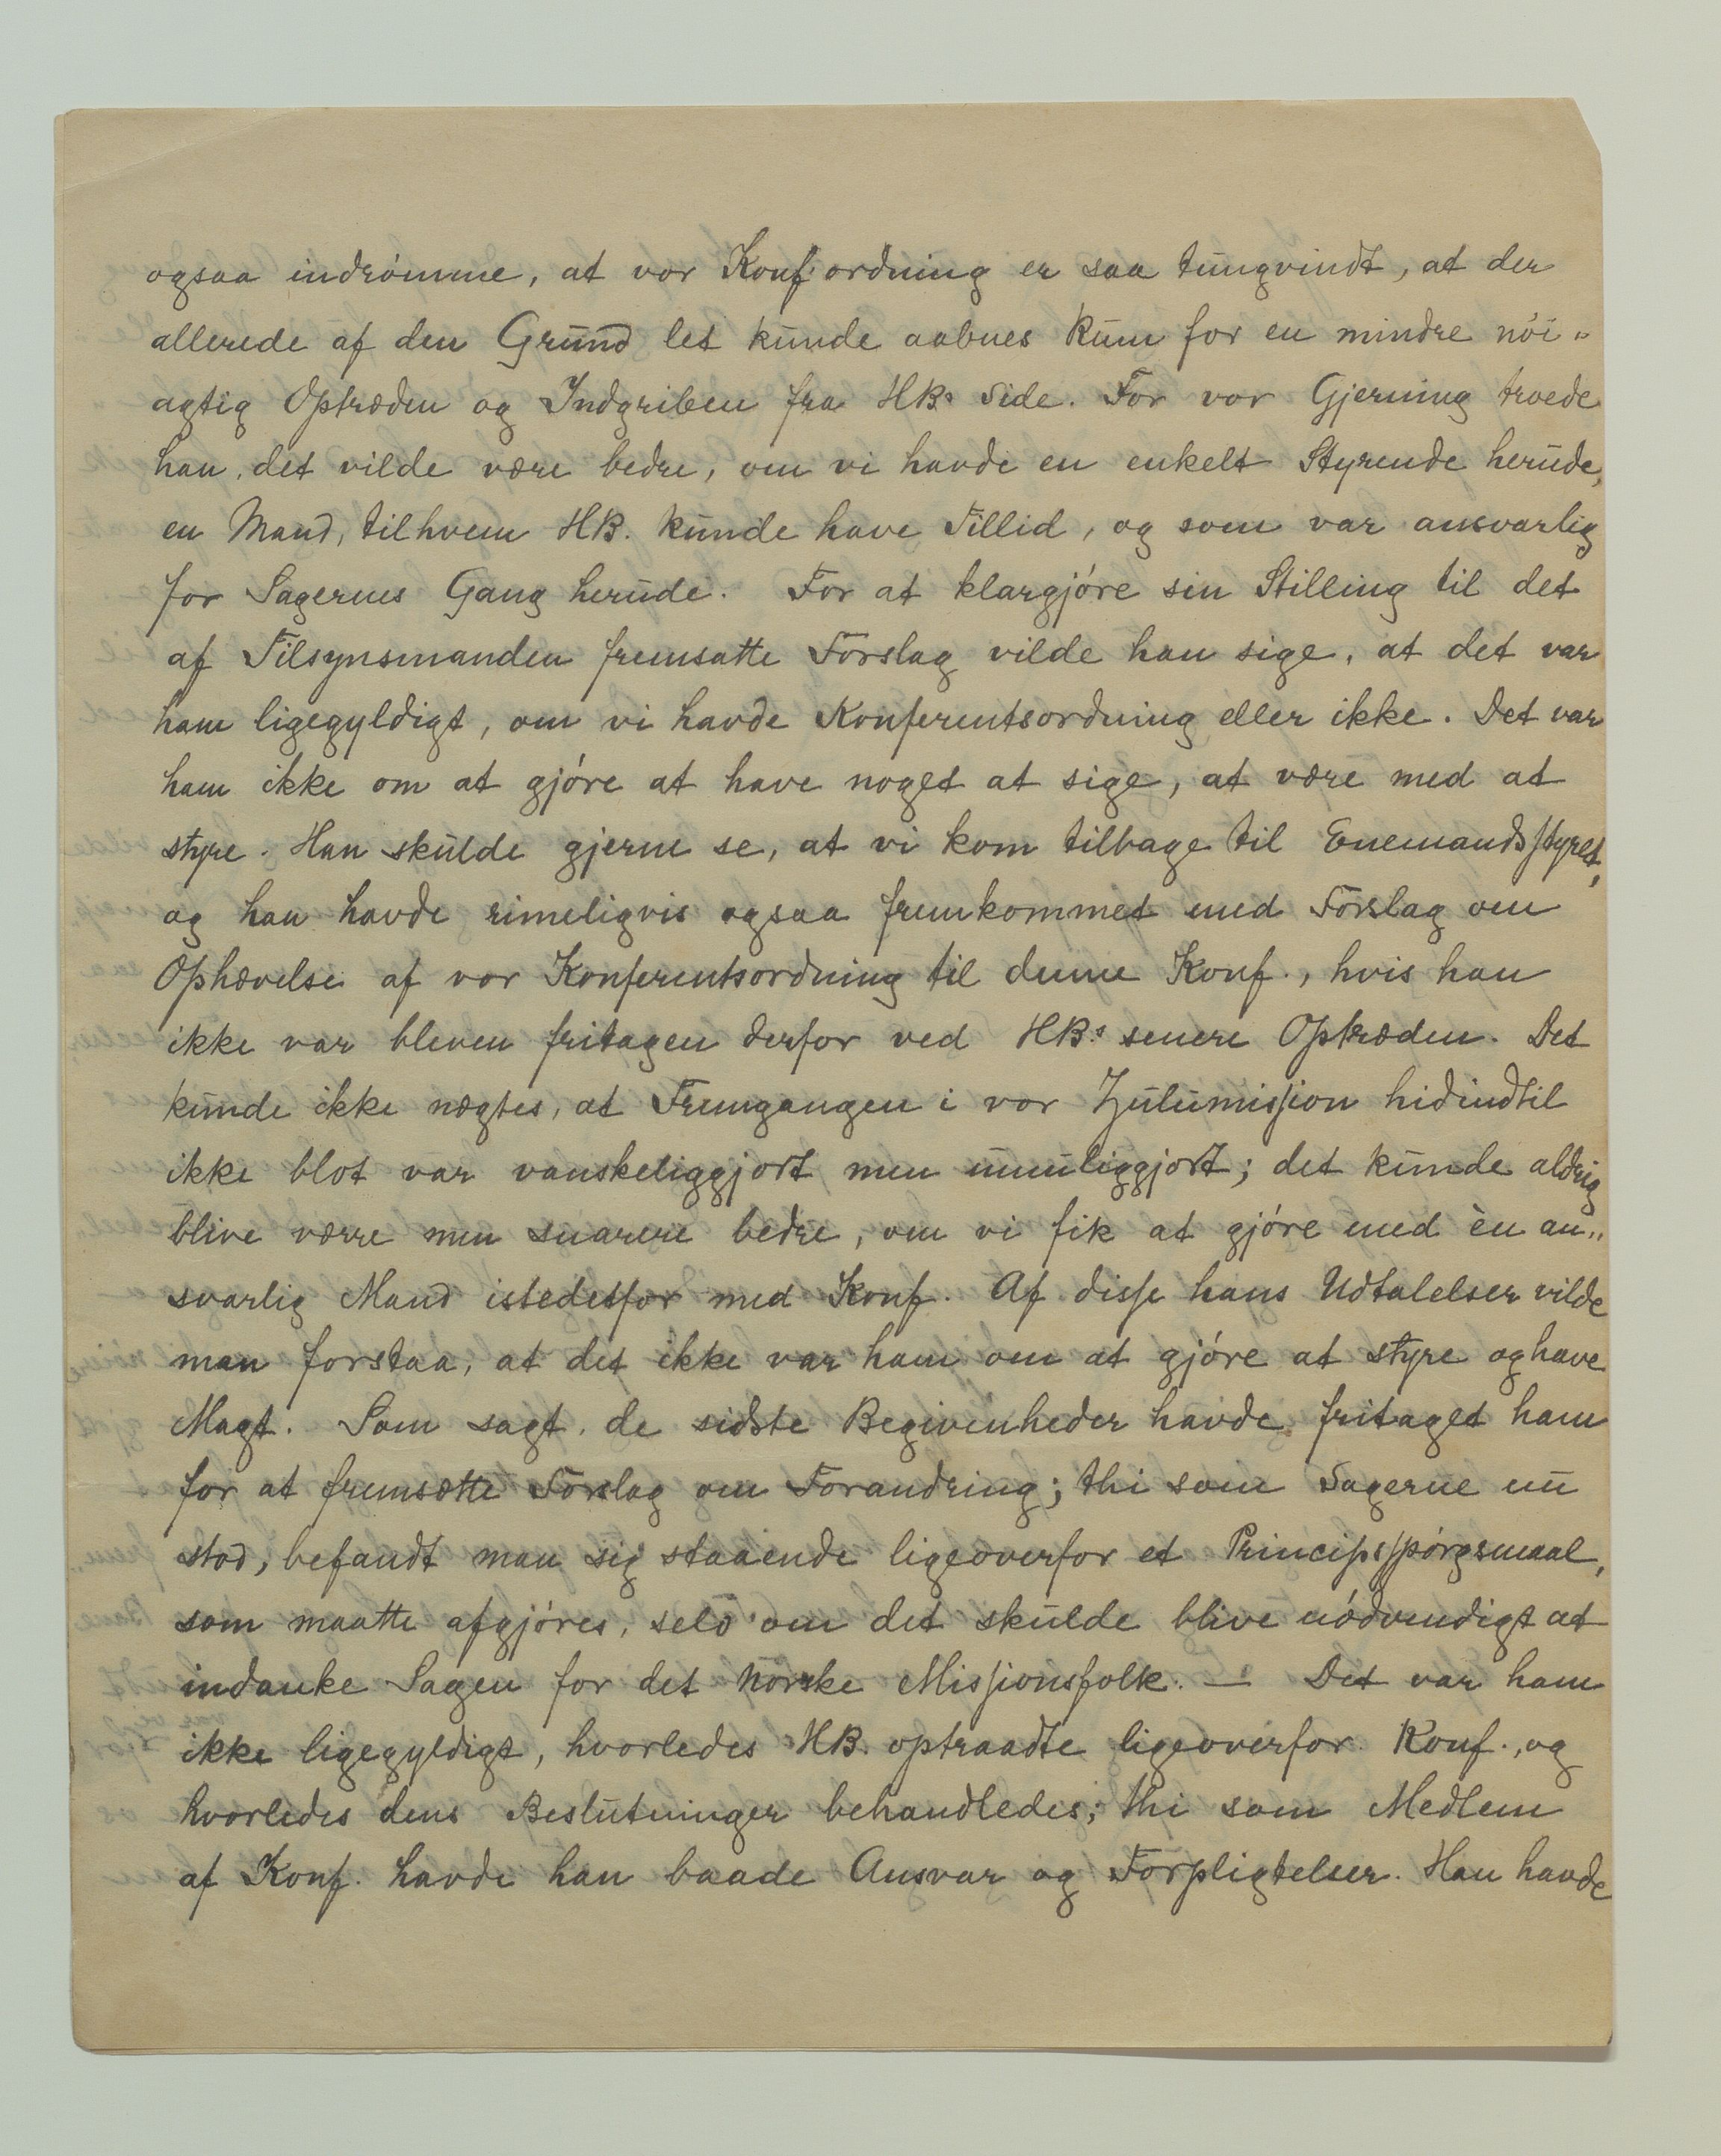 ogsaa indrømme, at vor Konf.ordning er saa tungvindt, at der
allerede af den Grund let kunde aabnes Rum for en mindre nöi-
agtig Optræden og Indgriben fra HBs Side. For vor Gjerning troede
han, det vilde være bedre, om vi havde en enkelt Styrende herude,
en Mand, til hvem HB. kunde have Tillid, og som var ansvarlig
for Sagernes Gang herude. For at klargjøre sin Stilling til det
af Tilsynsmanden fremsatte Forslag vilde han sige, at det var
ham ligegyldigt, om vi havde Konferentsordning eller ikke. Det var
ham ikke om at gjøre at have noget at sige, at være med at
styre. Han skulde gjerne se, at vi kom tilbage til Enemandsstyret,
og han havde rimeligvis ogsaa fremkommet med Forslag om
Ophævelse af vor Konferentsordning til denne Konf., hvis han
ikke var bleven fritagen derfor ved HBs senere Optræden. Det
kunde ikke nægtes, at Fremgangen i vor Zulumission hidindtil
ikke blot var vanskeliggjort men umuliggjort; det kunde aldrig
blive værre men snarere bedre, om vi fik at gjøre med èn an-
svarlig Mand istedetfor med Konf. Af disse hans Udtalelser vilde
man forstaa, at det ikke var ham om at gjøre at styre og have
Magt. Som sagt, de sidste Begivenheder havde fritaget ham
for at fremsætte Forslag om Forandring; thi som Sagerne nu
stod, befandt man sig staaende ligeoverfor et Principsspørgsmaal,
som maatte afgjøres, selv om det skulde blive nødvendigt at
indanke Sagen for det norske Missionsfolk. — Det var ham
ikke ligegyldigt, hvorledes HB. optraadte ligeoverfor Konf., og
hvorledes dens Beslutninger behandledes; thi som Medlem
af Konf. havde han baade Ansvar og Forpligtelser. Han havde